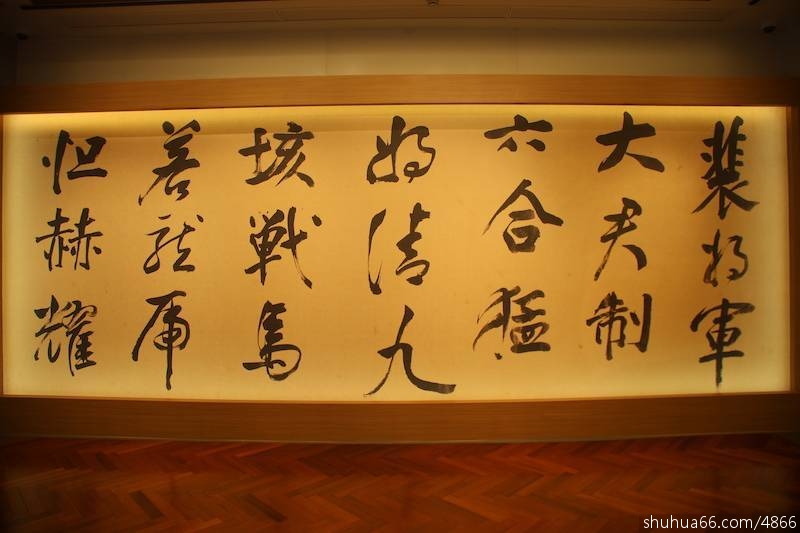 裴将軍
大君制
六合猛
将清九
垓戦馬
若龍虎
怛赫耀
shuhua66.com/4866